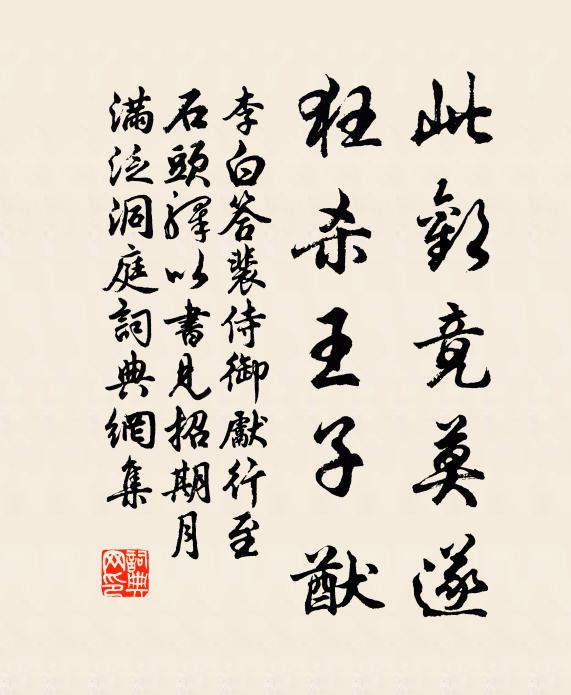 此歡竟莫遂
狂杀王子猷
李白答裴侍御獻行至
石頭驛以書見招期月
滿泛洞庭詞典網集
詞典
网印